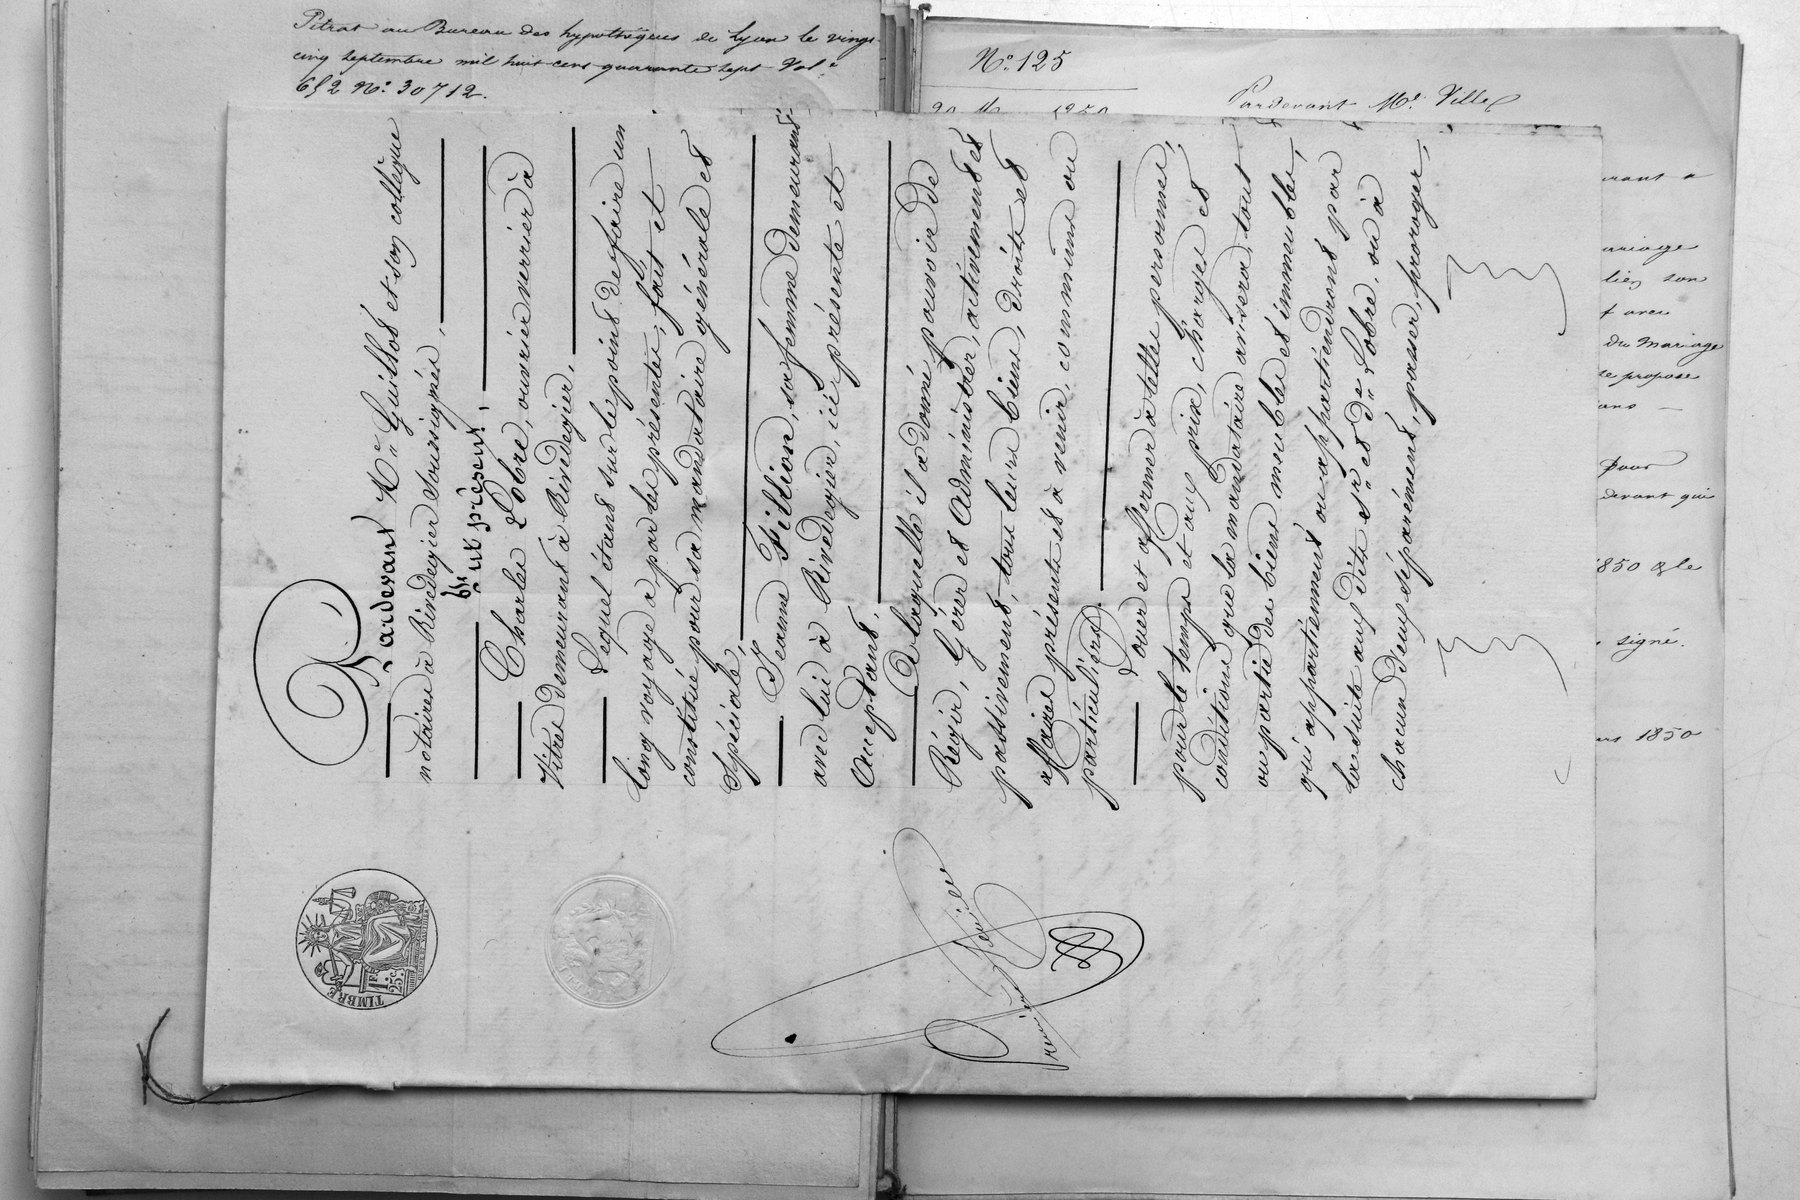 Pétrat au Bureau des hypothèques de Lyon le vingt
cinq septembre mil huit cent quarante sept Vol.e
652 N.o 30712.
N.o 125
Pardevant M.e
Pardevant M.e Guillot et son collègue
notaires à Rivedegier soussignés,
fut présent,
Charles Lobre, ouvrier verrier à
Vitres demeurant à Rivedegier,
Lequel étant sur le point de faire un
long voyage a par les présentes, fait et
constitué pour sa mandataire générale et
Spéciale,
Jeanne Fillion, sa femme demeurant
avec lui à Rivedegier, ici présente et
Acceptant,
A laquelle il a donné pouvoir de
Régir, Gérer et Administrer, activement et
passivement, tous leurs biens, droits et
affaires présents et à venir communs ou
particuliers.
Louer et affermer à telles personnes,
pour le temps et aux prix, charges et
conditions que la mandataire avisera, tout
ou partie des biens meubles et immeubles,
qui appartiennent ou appartiendront par
la suite aux dits S.r et D.e Lobre, ou à
chacun d'eux séparément, passer, proroger,
TIMBRE
1F.
25c.
Première
mariage
avec
du Mariage
propose
pour
devant qui
1850 & le
signé.
1850